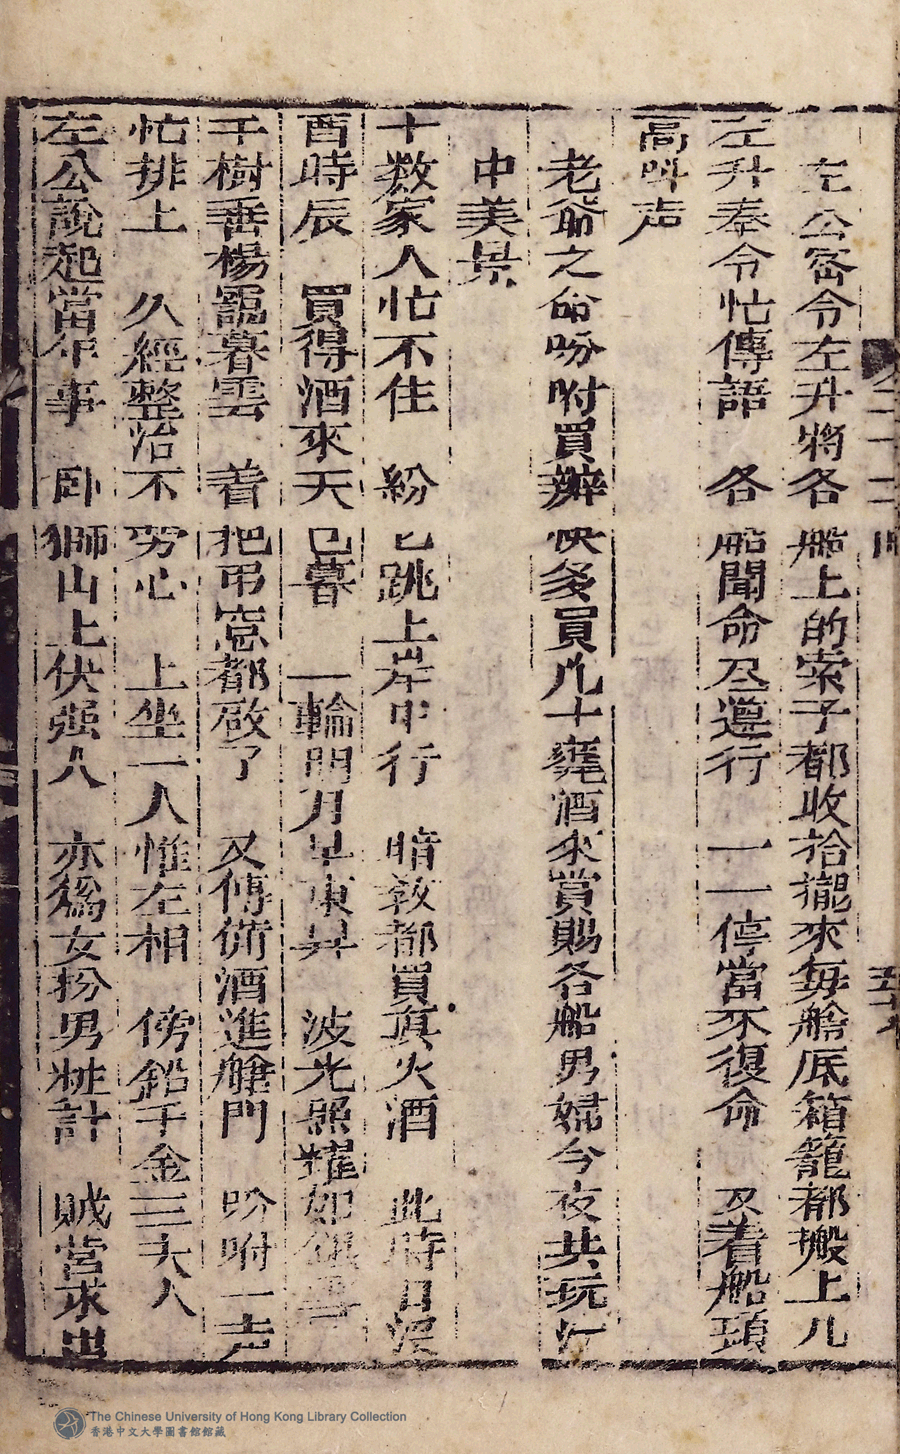 左公密令左升將各船上的索子都收拾擺來每艙底箱籠都搬上儿
左升奉令忙傳語　各船聞命及遵行　一一停當不復命　及着船頭
高呌声
老爺之命吩咐買辦快多買几十甕酒來賞賜各船男婦今夜共玩江
中美景
十数家人忙不住　紛匕跳上岸中行　暗敎都買眞火酒　此時日沒
酉時辰　買得酒來天已暮　一輪明月早東昇　波光照耀如銀
千樹垂楊靄暮雲　着把弔窓都啟了　又傳俻酒進艙門　吩咐一声
忙排上　久經整治不勞心　上坐一人惟左相　傍鉛千金三夫人
左公說起當年事　卧獅山上伏强人　亦爲女扮男粧計　賊營求出
The Chinese University of Hong Kong Library Collection
香港中文大學圖書館館藏